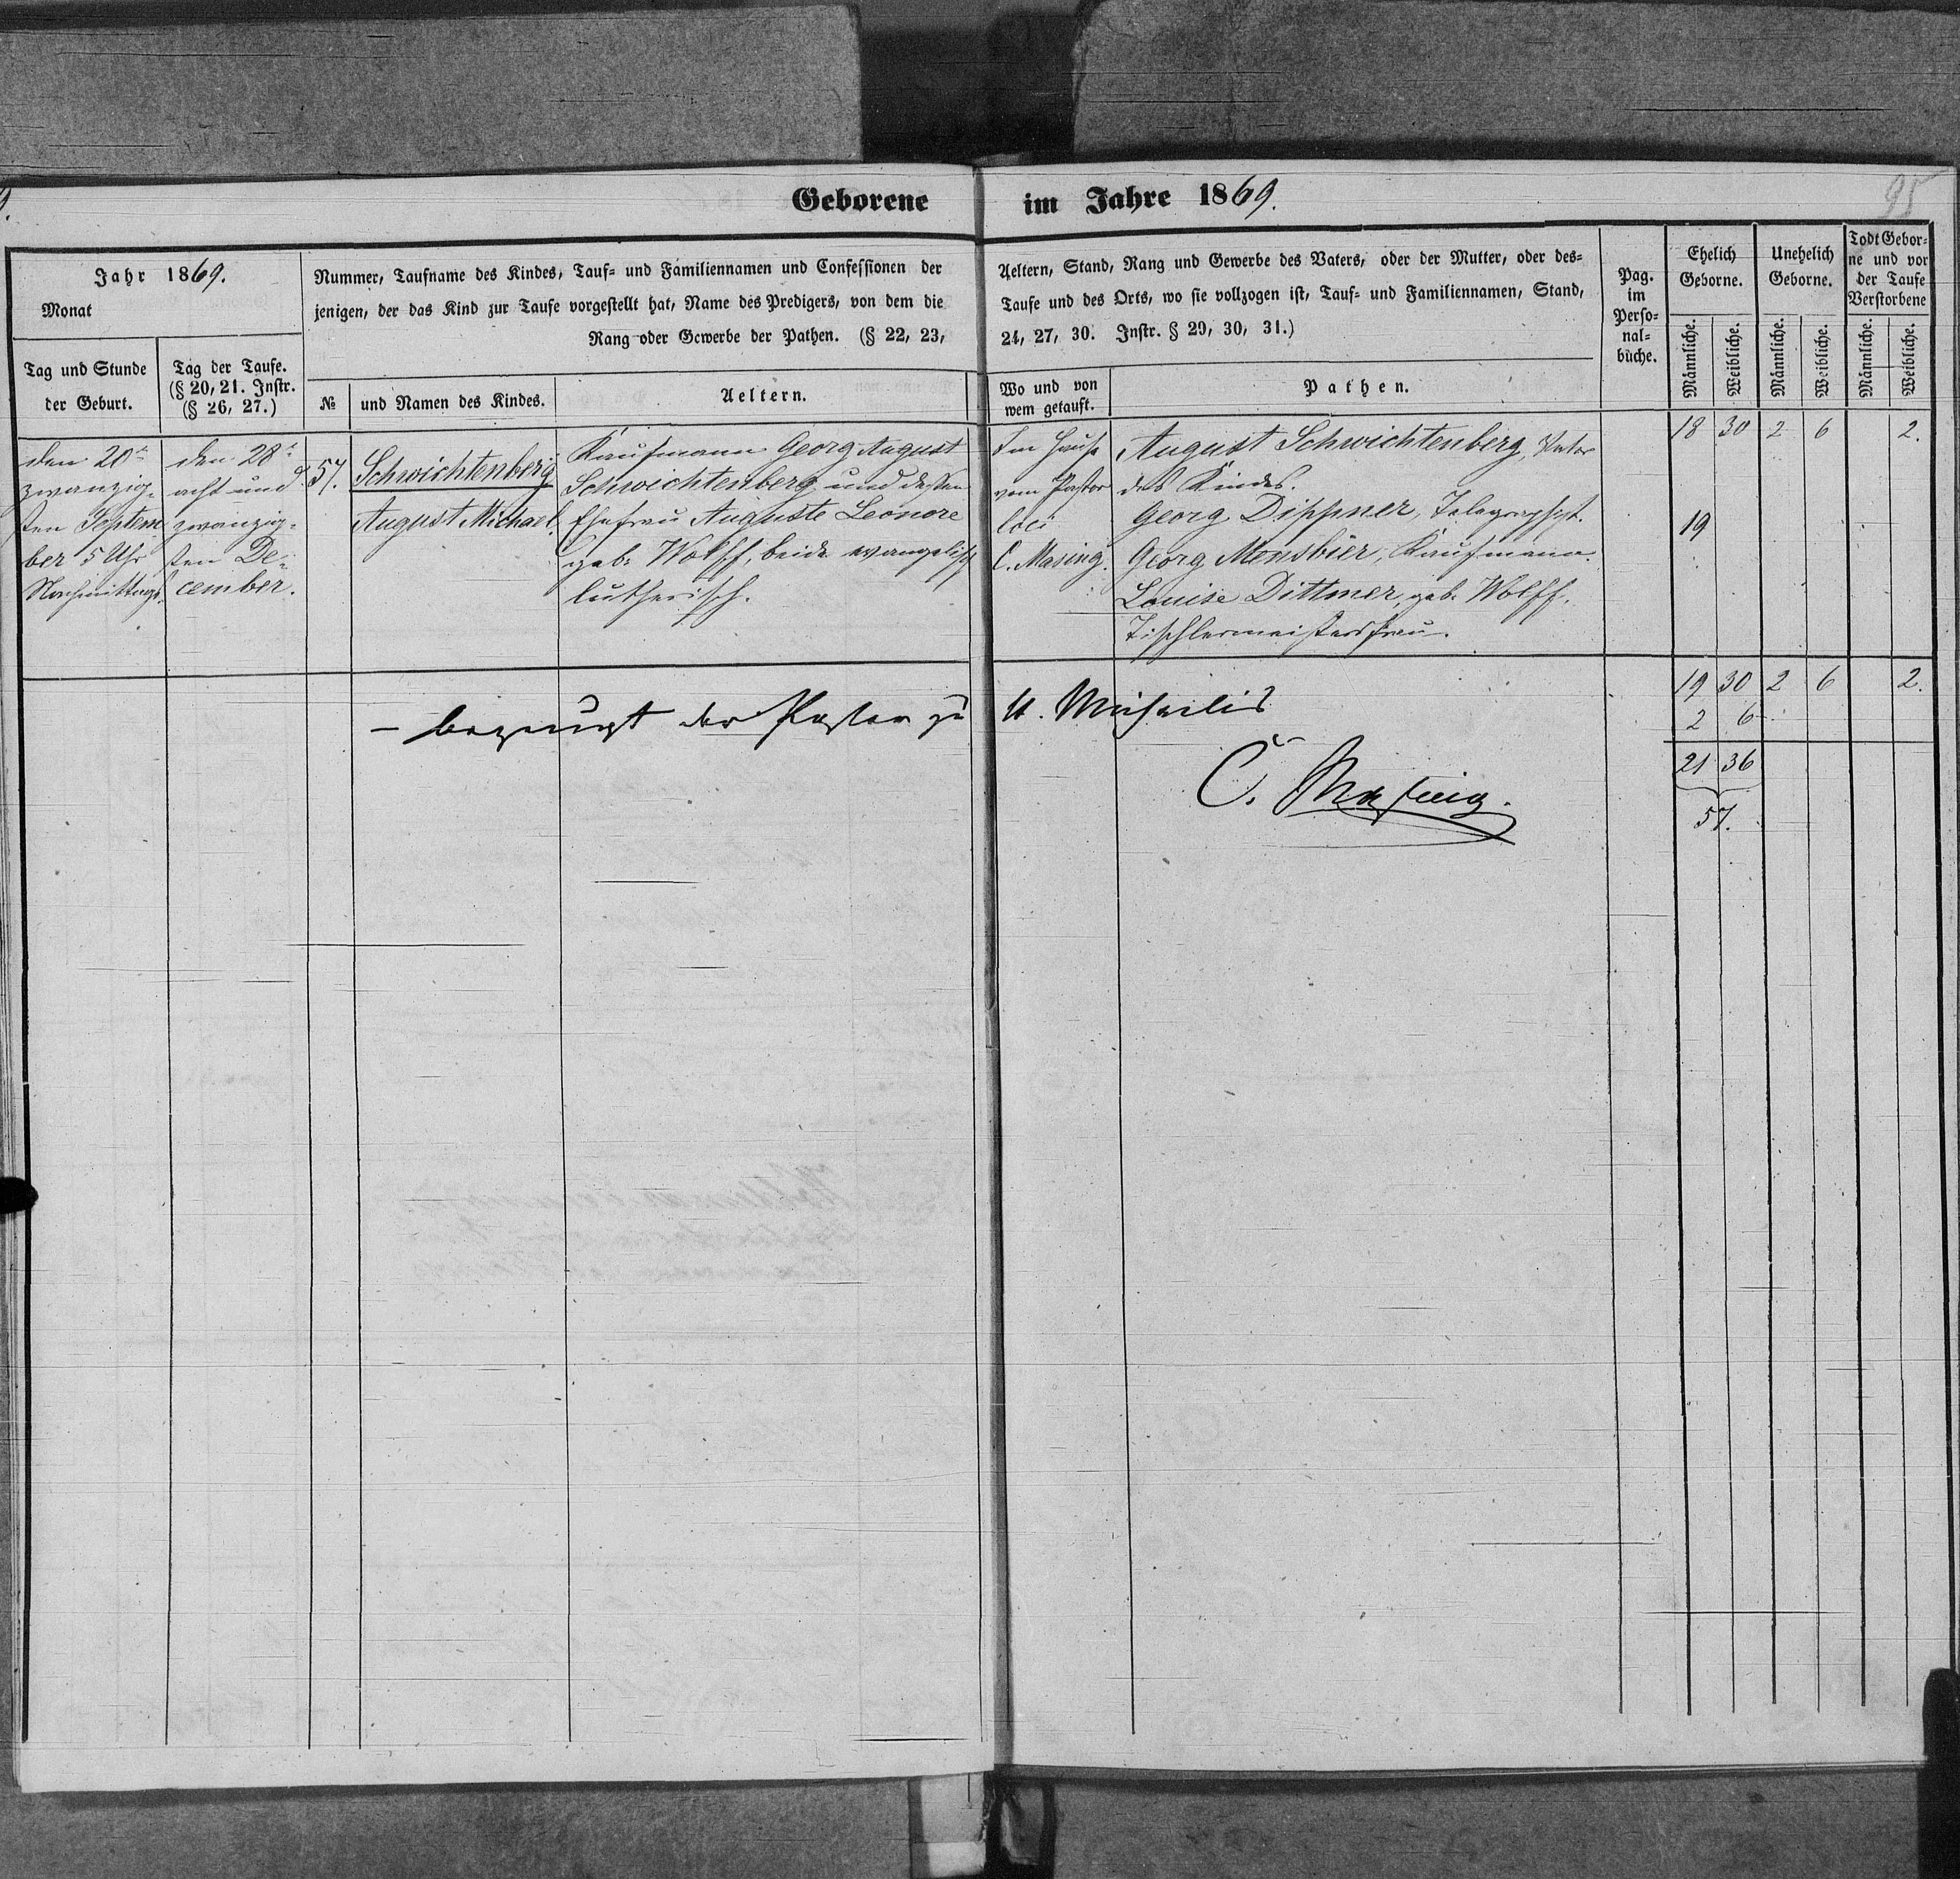 9.
Geborene im Jahre 1869.
95
Jahr 1869.
Monat
Tag und Stunde
der Geburt.
Tag der Taufe.
(§ 20, 21. Instr.
(§ 26, 27.)
Nummer, Taufname des Kindes, Tauf- und Familiennamen und Confessionen der
jenigen, der das Kind zur Taufe vorgestellt hat, Name des Predigers, von dem die
Rang oder Gewerbe der Pathen. (§ 22, 23,
№
und Namen des Kindes.
Aeltern.
Aeltern, Stand, Rang und Gewerbe des Vaters, oder der Mutter, oder des-
Taufe und des Orts, wo sie vollzogen ist, Tauf- und Familiennamen, Stand,
24, 27, 30. Instr. § 29, 30, 31.)
Wo und von
wem getauft.
Pathen.
Pag.
im
Perso-
nal-
buche.
Ehelich
Geborne.
Unehelich
Geborne.
Todt Gebor-
ne und vor
der Taufe
Verstorbene
Männliche.
Weibliche.
Männliche.
Weibliche.
Männliche.
Weibliche.
den 20t
zwanzig-
sten Septem
ber 5 Uhr
Nachmittags.
den 28t
acht und
zwanzig-
sten De-
cember.
57.
Schwichtenberg
August Michael.
Kaufmann Georg August
Schwichtenberg und dessen
Ehefrau Auguste Leonore
geb. Wolff, beide evangelisch
lutherisch.
Im Hause
vom Pastor
loci
C. Masing.
August Schwichtenberg, Vater
des Kindes.
Georg Dippner, Telegraphist.
Georg Monsbier, Kaufmann.
Louise Dittmer, geb. Wolff.
Tischlermeistersfrau.
18 30 2 6 2.
19
19 30 2 6 2.
2 6
21 36
57.
– bezeugt der Pastor zu St. Michaelis
C. Masing.